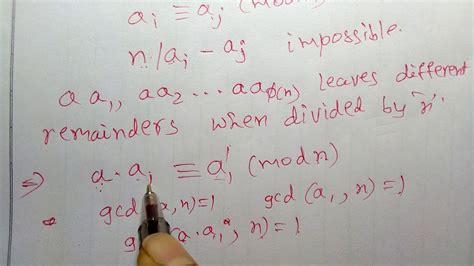 a_i ≡ a_j (mod n)
n/a_i - a_j impossible.
a a_1, a a_2 ... a a_ϕ(n) leaves different
remainders when divided by 'n'.
⇒ a · a_i ≡ a'_1 (mod n)
gcd (a, n) = 1 gcd (a_1, n) = 1
gcd (a·a_1, n) = 1